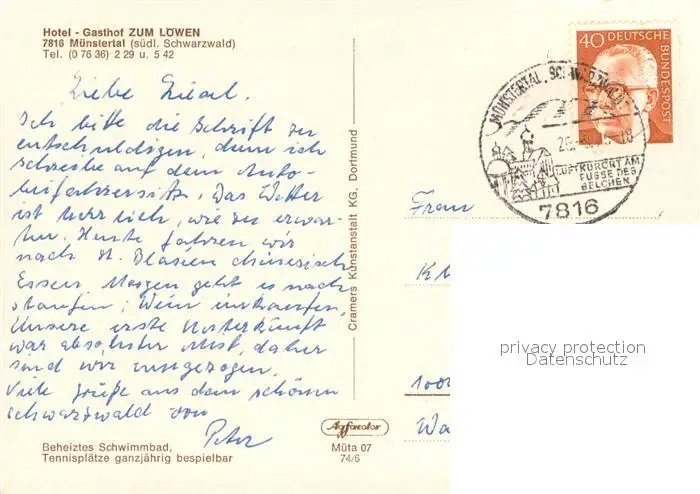 Hotel - Gasthof ZUM LÖWEN
7816 Münstertal (südl. Schwarzwald)
Tel. (0 76 36) 2 29 u. 5 42
Liebe
Ich bitte die Schrift zu
entschuldigen, denn ich
schreibe auf dem Auto-
beifahrersitz. Das Wetter
ist herrlich, wie zu erwar-
ten. Heute fahren wir
nach St. Blasien chinesisch
Essen. Morgen geht es nach
Staufen, Wein einkaufen,
Unsere erste Unterkunft
war absoluter Mist, daher
sind wir umgezogen.
Viele Grüße aus dem schönen
Schwarzwald von
Peter
Beheiztes Schwimmbad,
Tennisplätze ganzjährig bespielbar
Agfacolor
Müta 07
74/6
Cramers Kunstanstalt KG, Dortmund
40 DEUTSCHE
BUNDESPOST
MÜNSTERTAL, SCHWARZWALD
LUFTKURORT AM
FUSSE DES
BELCHEN
7816
Frau
privacy protection
Datenschutz